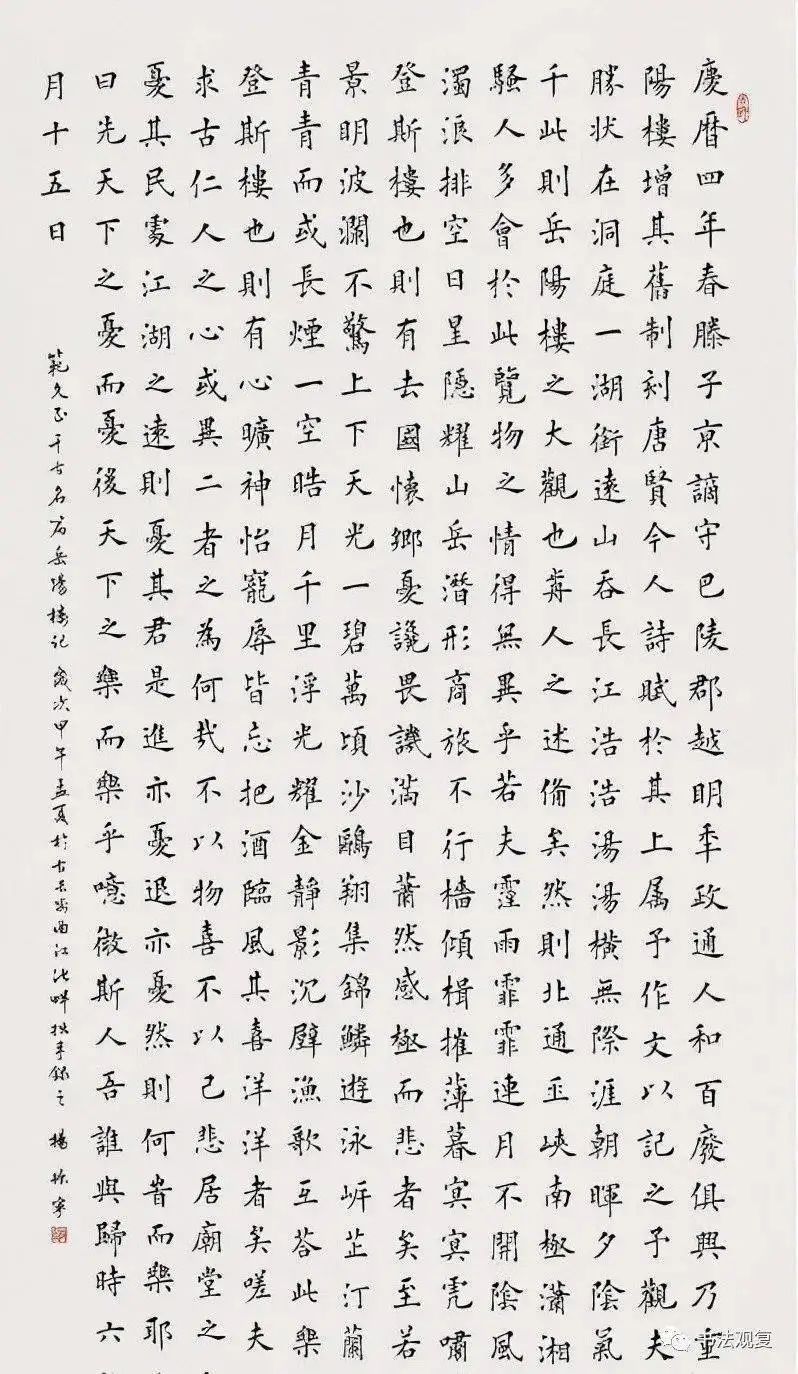 慶曆四年春滕子京謫守巴陵郡越明秊政通人和百廢俱興乃重
陽樓增其舊制刻唐賢今人詩賦於其上属予作文以記之予觀夫
勝状在洞庭一湖銜遠山吞長江浩浩湯湯橫無際涯朝暉夕陰氣
千此則岳陽樓之大觀也歬人之述備矣然則北通巫峽南極瀟湘
騷人多會於此覽物之情得無異乎若夫霪雨霏霏連月不開陰風
濁浪排空日星隱耀山岳潛形商旅不行檣傾楫摧薄暮冥冥虎嘯
登斯樓也則有去國懷鄉憂讒畏譏滿目蕭然感極而悲者矣至若
景明波瀾不驚上下天光一碧萬頃沙鷗翔集錦鱗遊泳岸芷汀蘭
青青而或長煙一空皓月千里浮光耀金靜影沉璧漁歌互荅此樂
登斯樓也則有心曠神怡寵辱皆忘把酒臨風其喜洋洋者矣嗟夫
求古仁人之心或異二者之為何哉不以物喜不以己悲居廟堂之
憂其民處江湖之遠則憂其君是進亦憂退亦憂然則何時而樂耶
曰先天下之憂而憂後天下之樂而樂乎噫微斯人吾誰與歸時六
月十五日
範文正千古名岳陽樓記 歲次甲午孟夏於古長安曲江池畔錄之 楊寧
书法观复